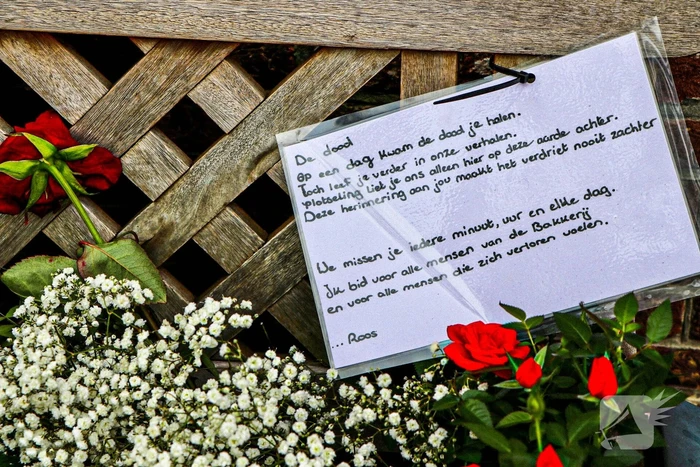 De dood
Op een dag kwam de dood je halen.
Toch leef je verder in onze verhalen.
Plotseling liet je ons alleen hier op deze aarde achter.
Deze herinnering aan jou maakt het verdriet nooit zachter
We missen je iedere minuut, uur en elke dag.
Ik bid voor alle mensen van de Bakkerij
en voor alle mensen die zich verloren voelen.
... Roos